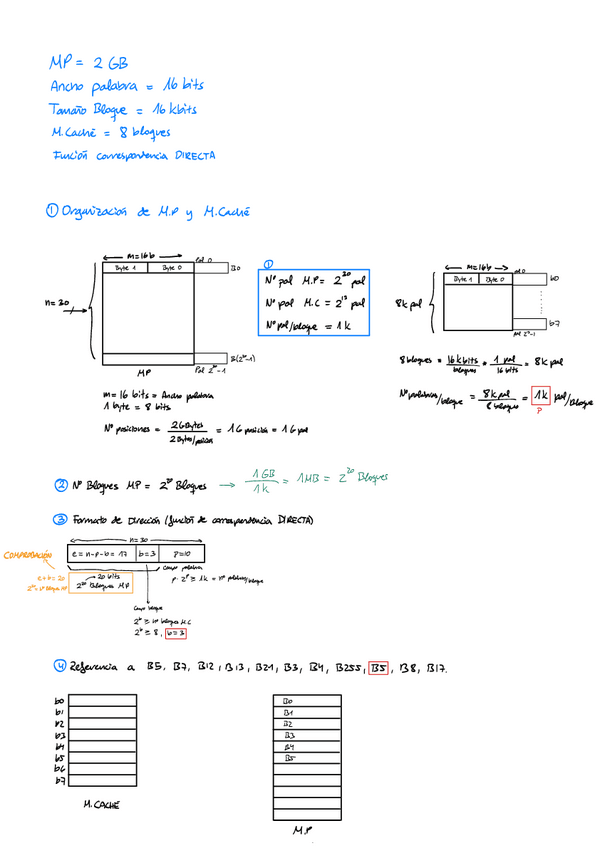 MP = 2 GB
Ancho palabra = 16 bits
Tamaño Bloque = 16 kbits
M.Caché = 8 bloques
Función correspondencia DIRECTA
① Organización de M.P y M.Caché
m=16b
Byte 1 Byte 0
Pal 0
B0
n=30
B(2²⁰-1)
Pal 2³⁰-1
MP
①
Nº pal M.P = 2³⁰ pal
Nº pal M.C = 2¹³ pal
Nº pal/bloque = 1k
m=16b
Byte 1 Byte 0
b0
8k pal
b7
m=16 bits = Ancho palabra
1 byte = 8 bits
Nº posiciones = 2GBytes / 2Bytes/posición = 1G posición = 1G pal
8 bloques = 16 kbits/bloques * 1 pal/16 bits = 8k pal
Nº palabras/bloque = 8k pal / 8 bloques = 1k pal/bloque
P
② Nº Bloques MP = 2²⁰ Bloques → 1GB / 1k = 1MB = 2²⁰ Bloques
③ Formato de Dirección (función de correspondencia DIRECTA)
n=30
e = n-p-b = 17 b=3 p=10
COMPROBACIÓN
e+b=20
20 bits
2²⁰ bloques M.P
Campo palabra
p: 2ᵖ ≥ 1k = nº palabras/bloque
Campo bloque
2ᵇ ≥ nº bloques M.C
2ᵇ ≥ 8, b=3
④ Referencia a B5, B7, B12, B13, B21, B3, B4, B255, B5, B8, B17.
b0
b1
b2
b3
b4
b5
b6
b7
M.CACHÉ
B0
B1
B2
B3
B4
B5
M.P